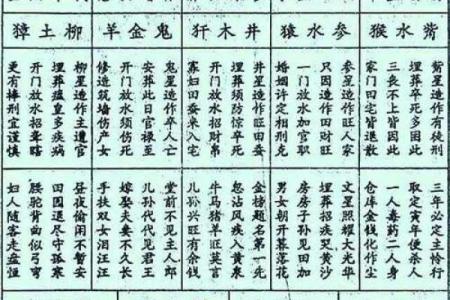 觜水猴
觜星造作有徒刑
三年必定主恁行
埋葬卒死多因此
取定寅年便杀人
三丧不止皆因此
一人毒药二人身
家门田宅皆退散
仓库金钱化作尘
参水猿
参星造作旺人家
文星照耀大光华
只因造作田财旺
埋葬招疾哭黄沙
开门放水加官职
房房子孙见田加
婚姻许定相刑克
男女朝开暮落花
井木犴
井星造作旺田蚕
金榜题名第一先
埋葬须防惊卒死
忽沾风疾入黄泉
开门放水招财帛
牛马猪羊旺莫言
寡妇田蚕来入宅
儿孙兴旺有余钱
鬼金羊
鬼星造作卒人亡
堂前不见主人郎
安葬此日官禄至
儿孙代代见君王
开门放水须伤死
嫁娶夫妻不久长
修造筑墙伤产女
手扶双女泪汪汪
柳土獐
柳星造作主遭官
昼夜偷闲不暂安
埋葬瘟皇多疾病
田园退尽守孤寒
开门放水招聋瞎
腰驼背曲似弓弯
更有棒刑宜谨慎
妇人随客走盘恒